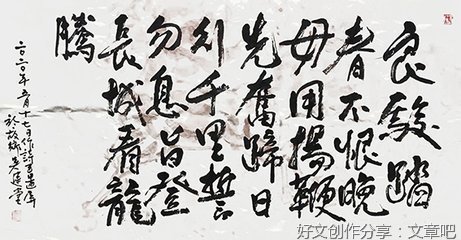 良駿踏
春不恨晚
毋用揚鞭
先奮蹄日
行千里誓
勿息旨登
長城看龍
騰
二〇二〇年五月十七日作詩書
於故鄉
好文创作分享：文章吧